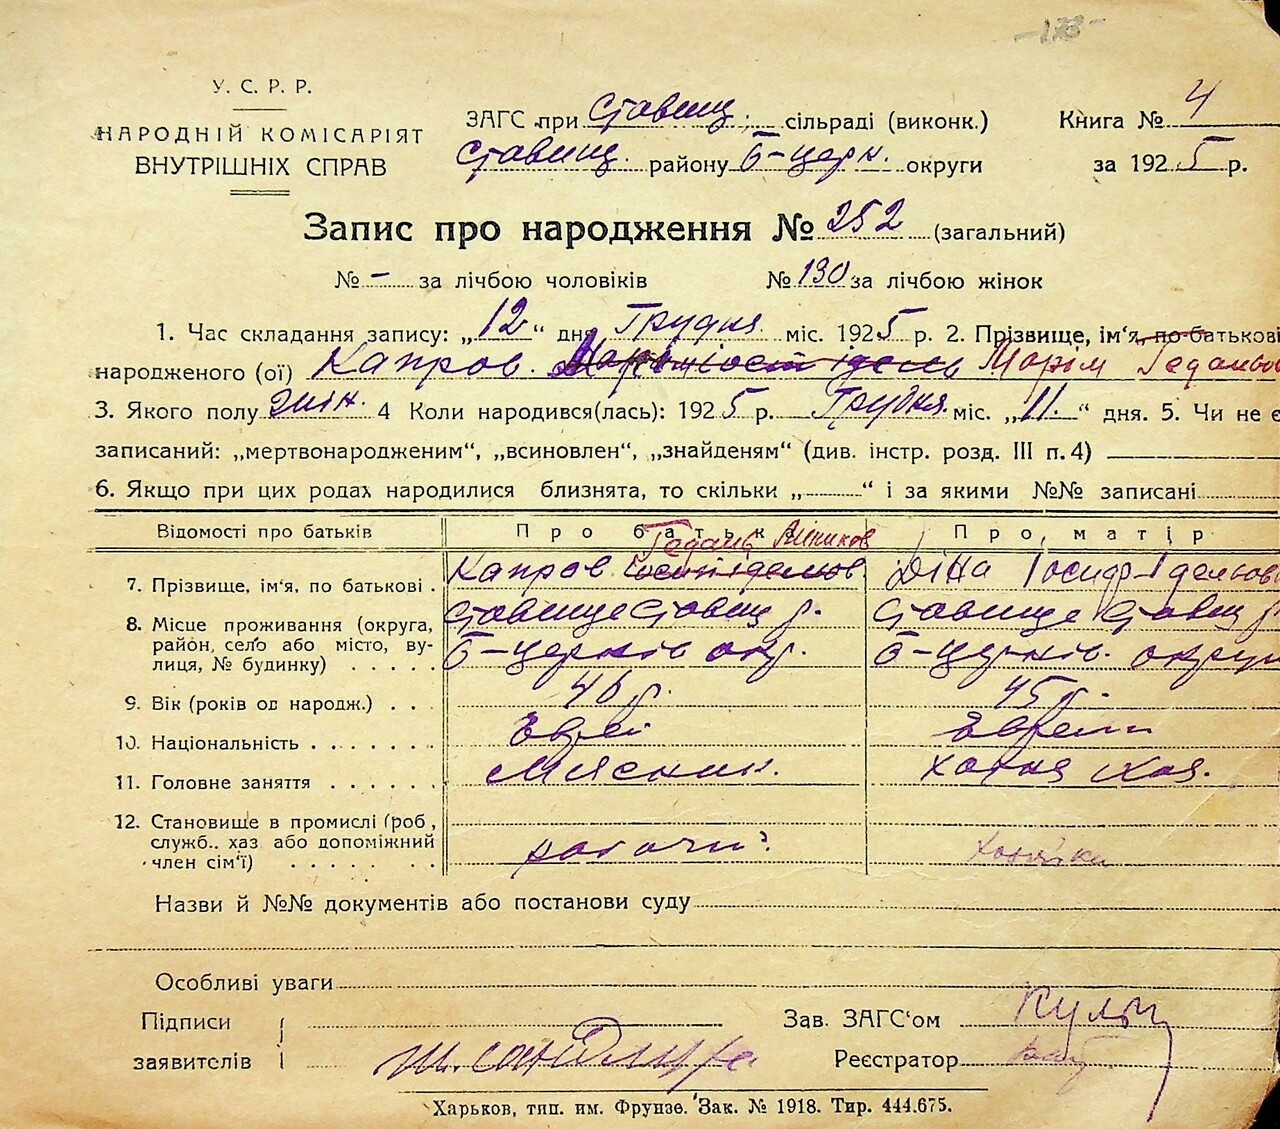 -173-
У. С. Р. Р.
НАРОДНІЙ КОМІСАРІЯТ
ВНУТРІШНІХ СПРАВ
ЗАГС при Ставищ. сільраді (виконк.)
Книга № 4
Ставищ. району Б-церк. округи
за 1925 р.
Запис про народження № 252 (загальний)
№ - за лічбою чоловіків № 130 за лічбою жінок
1. Час складання запису: „12“ дня Грудня міс. 1925 р. 2. Прізвище, ім‘я, по-батькові
народженого (ої) Капров.
3. Якого полу жін. 4 Коли народився(лась): 1925 р. Грудня міс. „11.“ дня. 5. Чи не є
записаний: „мертвонародженим“, „всиновлен“, „знайденям“ (див. інстр. розд. III п. 4)
6. Якщо при цих родах народилися близнята, то скільки „ “ і за якими №№ записані
Відомості про батьків
Про батька
Про матір
7. Прізвище, ім‘я, по батькові .
Капров
Діна
8. Місце проживання (округа, район, село або місто, вулиця, № будинку) . . . . .
Ставище Ставищ р.
Б-церків окр.
Ставище Ставищ р
Б-церків. округи
9. Вік (років од народж.) . . .
46 р.
45 р.
10. Національність . . . . . . .
Еврей
Еврей
11. Головне заняття . . . . . .
Мясник.
хатня
12. Становище в промислі (роб., служб.. хаз або допоміжний член сім‘ї) . . . . . .
хазяйка
Назви й №№ документів або постанови суду
Особливі уваги
Підписи
заявителів
Зав. ЗАГС‘ом
Реєстратор
Харьков, тип. им. Фрунзе. Зак. № 1918. Тир. 444.675.